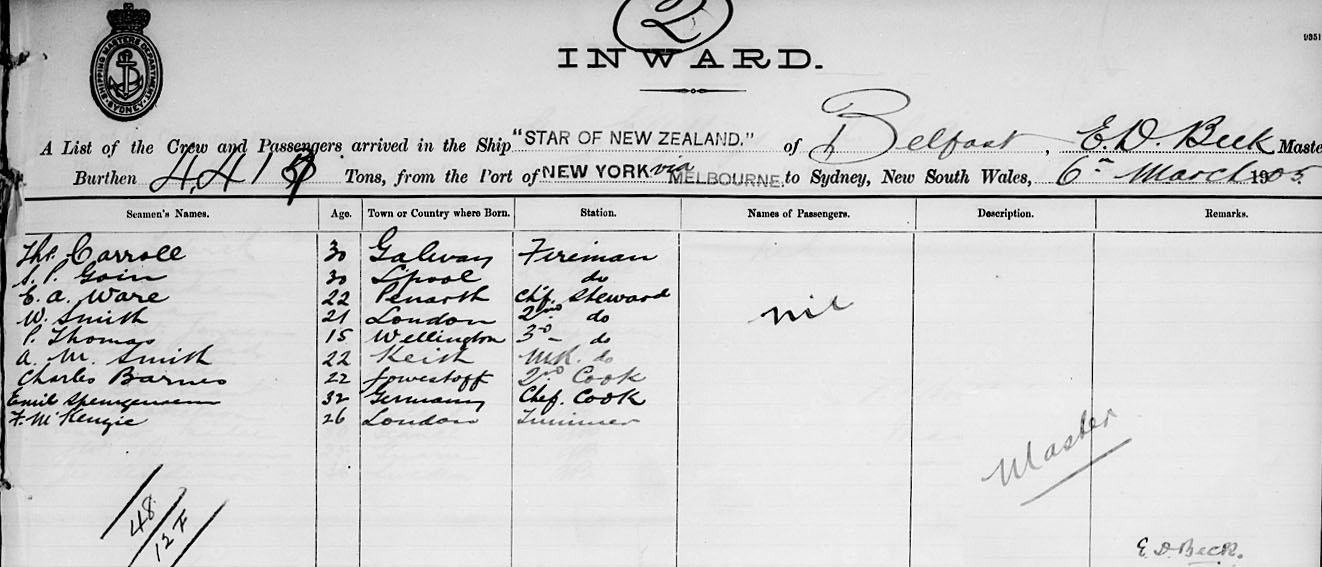 2
9351
SHIPPING MASTERS DEPARTMENT SYDNEY
INWARD.
A List of the Crew and Passengers arrived in the Ship "STAR OF NEW ZEALAND." of Belfast, E. D. Beck Maste
Burthen Tons, from the Port of NEW YORK via MELBOURNE to Sydney, New South Wales, 6th March 1905.
Seamen's Names. Age. Town or Country where Born. Station. Names of Passengers. Description. Remarks.
Ths. Carroll 30 Galway Fireman
S. P. Goin 30 Lpool do
E. A. Ware 22 Penarth Chf. Steward
W. Smith 21 London 2nd do nil
P. Thomas 15 Wellington 3rd do
A. M. Smith 22 Keith do
Charles Barnes 22 Lowestoff 2nd Cook
Emil 32 Germany Chef. Cook
F. McKenzie 26 London Trimmer
Master
48
12 F
E. D. Beck.